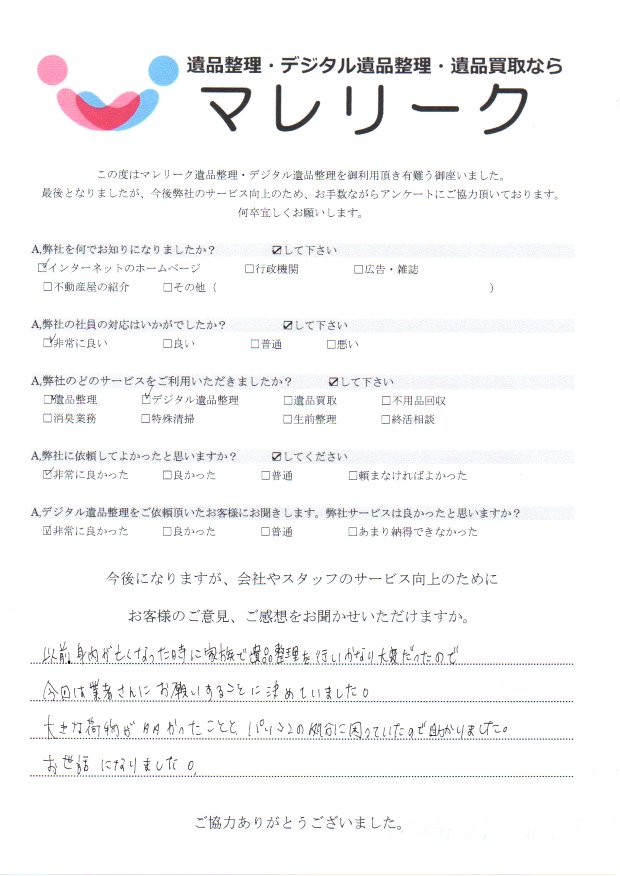 遺品整理・デジタル遺品整理・遺品買取なら
マレリーク
この度はマレリーク遺品整理・デジタル遺品整理を御利用頂き有難う御座いました。
最後となりましたが、今後弊社のサービス向上のため、お手数ながらアンケートにご協力頂いております。
何卒宜しくお願いします。
A,弊社を何でお知りになりましたか？ ☑して下さい
☑インターネットのホームページ □行政機関 □広告・雑誌
□不動産屋の紹介 □その他（ ）
A,弊社の社員の対応はいかがでしたか？ ☑して下さい
☑非常に良い □良い □普通 □悪い
A,弊社のどのサービスをご利用いただきましたか？ ☑して下さい
☑遺品整理 ☑デジタル遺品整理 □遺品買取 □不用品回収
□消臭業務 □特殊清掃 □生前整理 □終活相談
A,弊社に依頼してよかったと思いますか？ ☑してください
☑非常に良かった □良かった □普通 □頼まなければよかった
A,デジタル遺品整理をご依頼頂いたお客様にお聞きします。弊社サービスは良かったと思いますか？
☑非常に良かった □良かった □普通 □あまり納得できなかった
今後になりますが、会社やスタッフのサービス向上のために
お客様のご意見、ご感想をお聞かせいただけますか。
以前身内が亡くなった時に家族で遺品整理を行いかなり大変だったので
今回は業者さんにお願いすることに決めていました。
大きな荷物が多かったことと、パソコンの処分に困っていたので助かりました。
お世話になりました。
ご協力ありがとうございました。